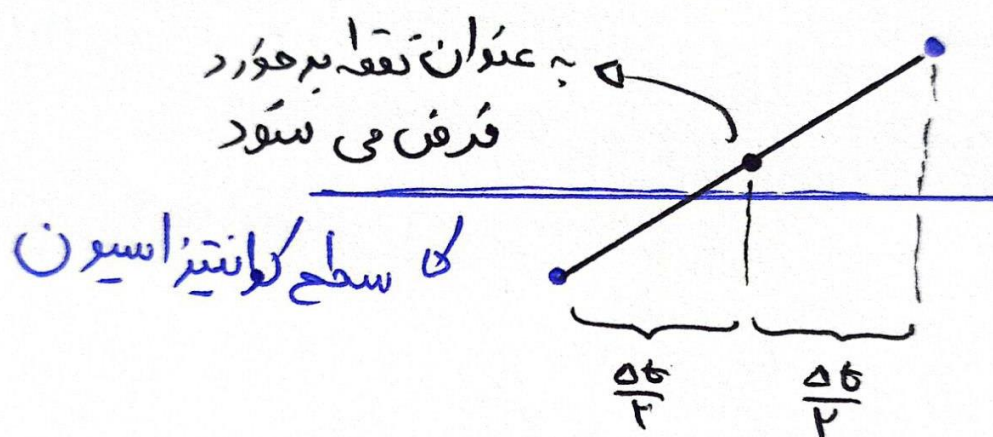 به عنوان نقطه برخورد
فرض می شود
سطح کوانتیزاسیون
Δt/۲ Δt/۲